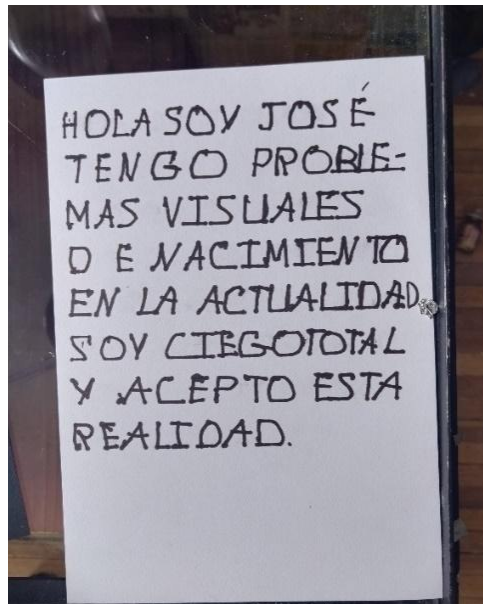 HOLA SOY JOSÉ
TENGO PROBLE-
MAS VISUALES
DE NACIMIENTO
EN LA ACTUALIDAD
SOY CIEGOTOTAL
Y ACEPTO ESTA
REALIDAD.